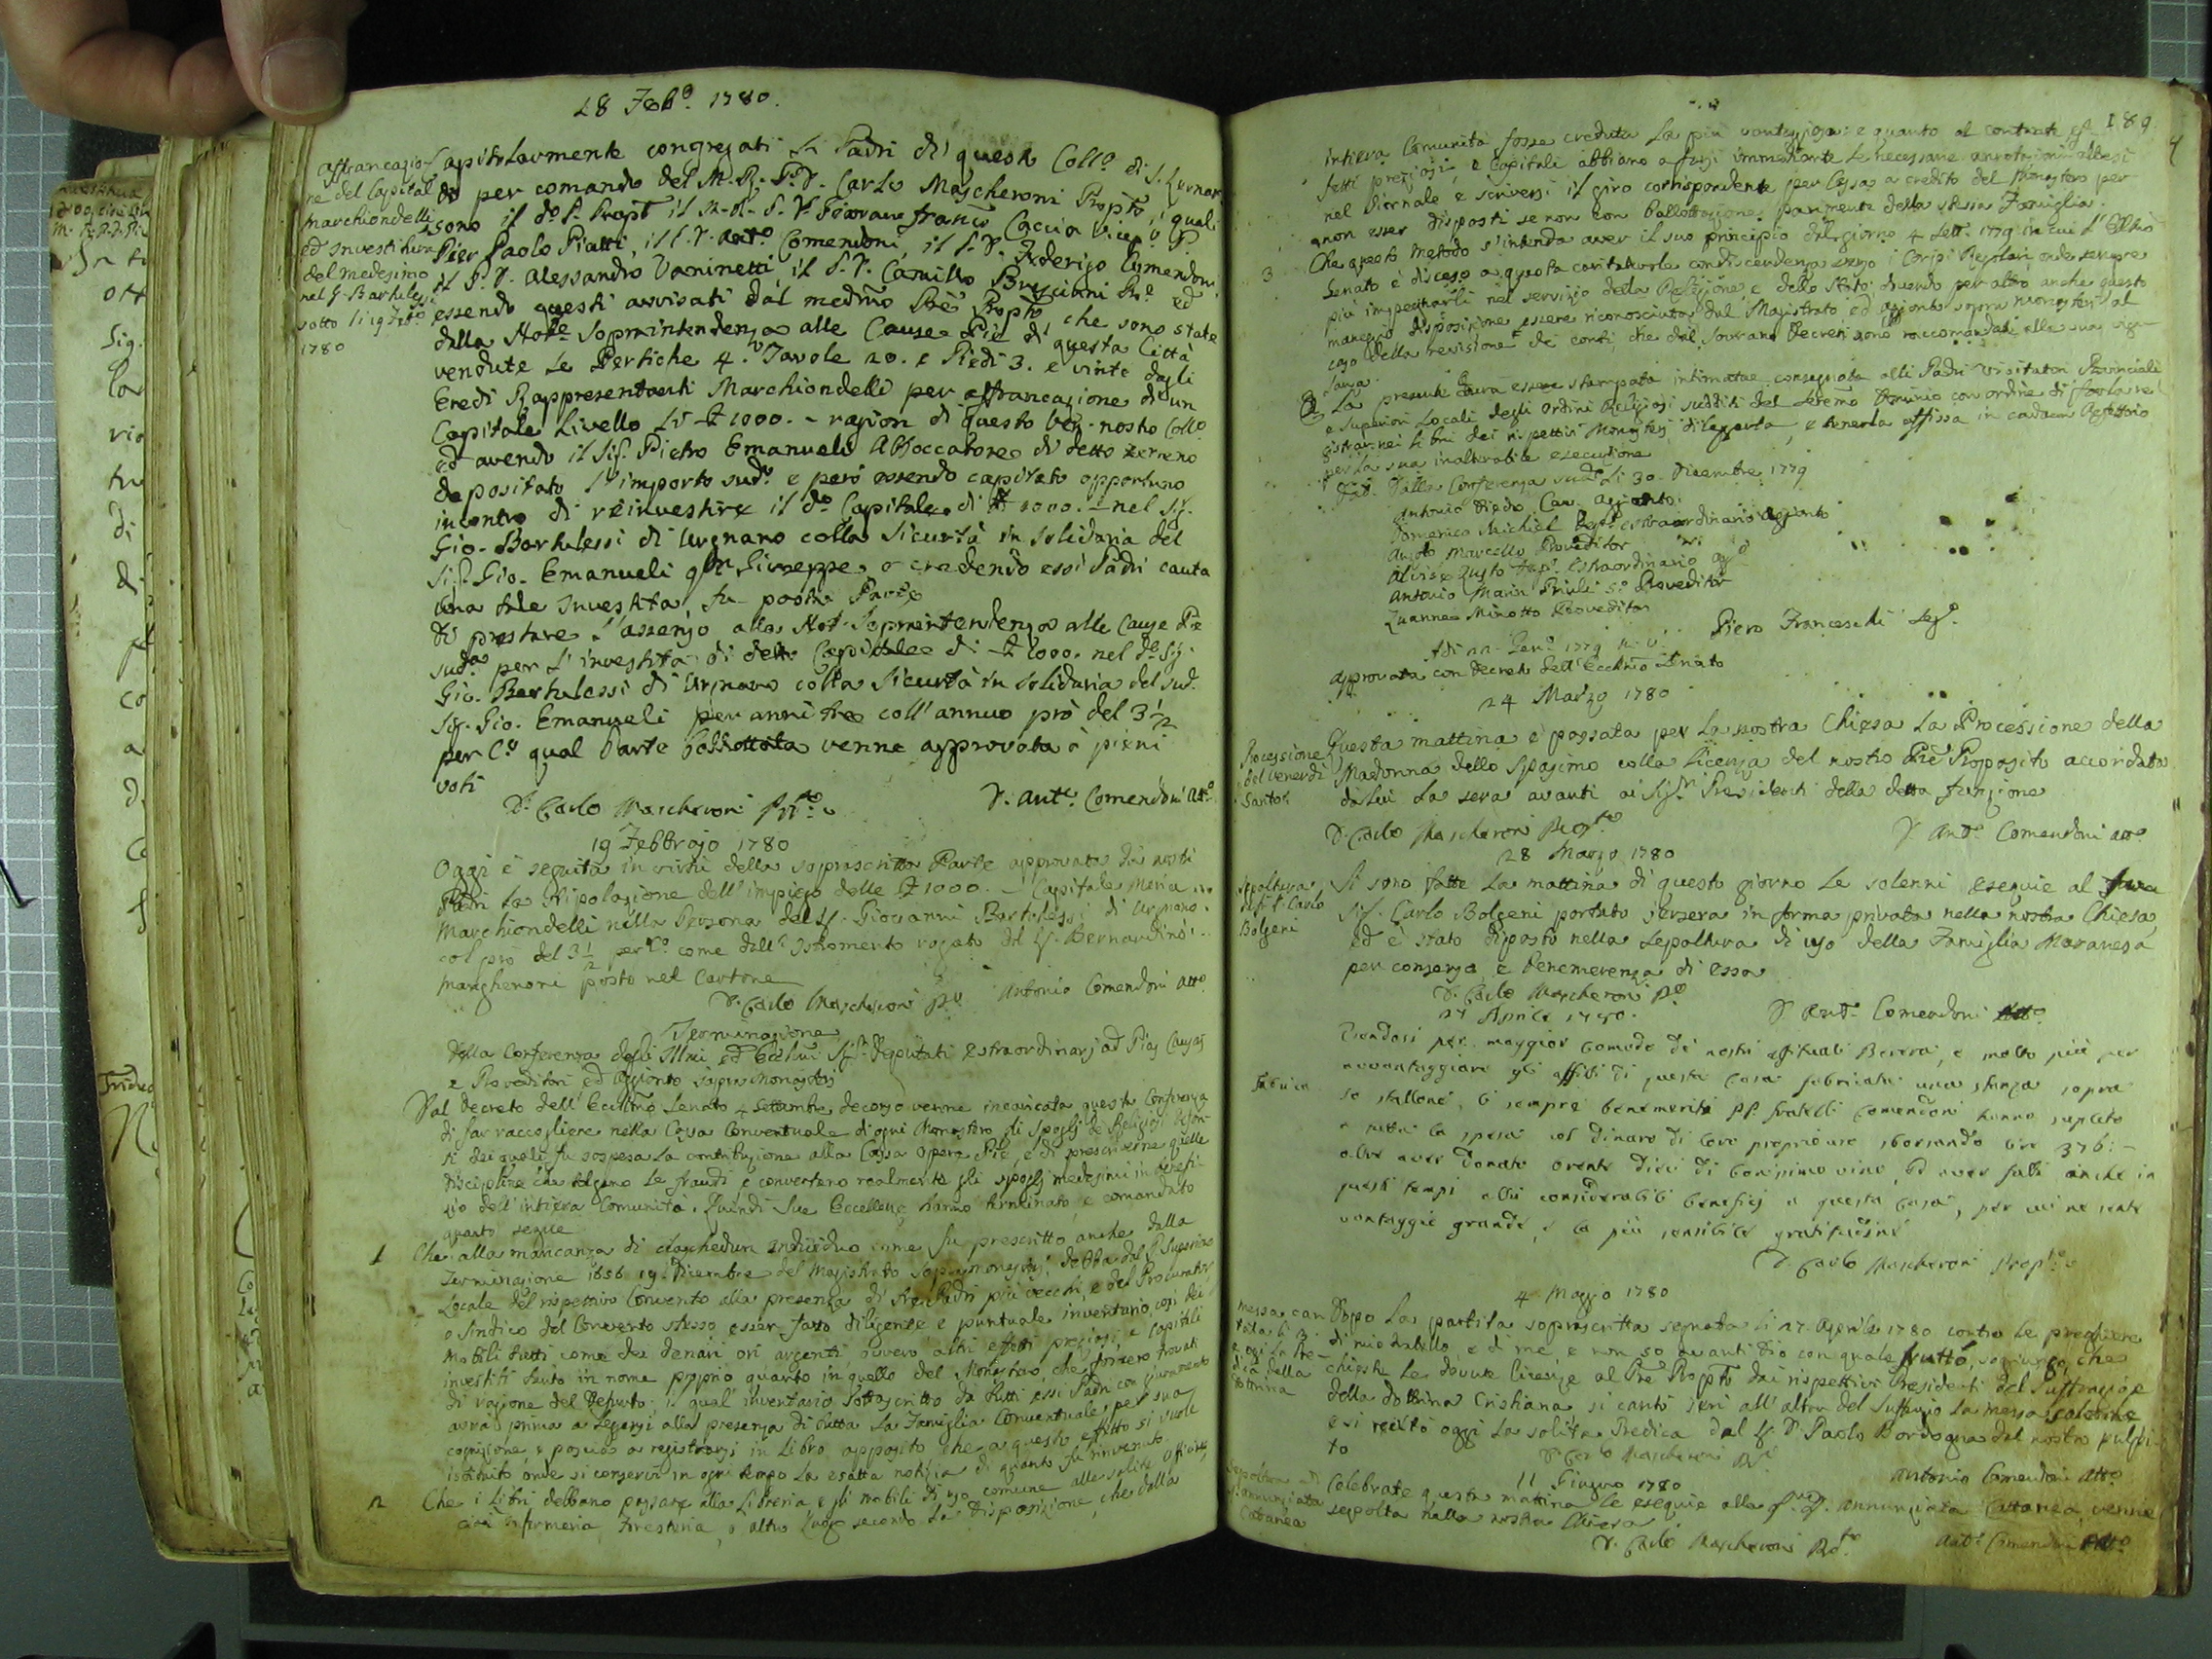 18 Feb.o 1780.
affrancazio-
ne del Capital
Marchiondelli
ed Investitura
del medesimo
nel S. Bartuless
sotto li 19 Febo
1780
Capitolarmente congregati li Padri di questo Collo di S. Leonar
do per comando del M. R. P. D. Carlo Mascheroni Propto, i quali
sono il do P. Propt il M. R. P. D. Giovanni Franco Caccia Vicepo P.
Pier Paolo Piatti, il P. D. Anto Comendoni, il P. D. Federigo Comendoni
il P. D. Alessandro Vaninetti il P. D. Camillo Bresciani
essendo questi avvisati dal medmo Pre Propto, che sono state
dalla Noble Sopraintendenza alle Cause Pie di questa Città
vendute le Pertiche 4. Tavole 20. e Piedi 3. e vinte dagli
Eredi Rappresentanti Marchiondelli per affrancazione di un
Capitale Livello di £ 1000. - ragion di questo Ven. nostro Collo
ed avendo il Sig. Pietro Emanueli Abboccatore di detto terreno
depositato l'importo sudo e però essendo capitato opportuno
incontro di reinvestire il do Capitale di £ 1000. - nel Sig.
Gio. Bartulessi di Urgnano colla Sicurtà in Solidaria del
Sig. Gio. Emanueli qm Giuseppe, e credendo essi Padri cauta
una tale Investita, fu posta Parte
di prestare l'assenso alla Nob. Sopraintendenza alle Cause Pie
suda per l'investita di detto Capitale di £ 1000. nel do Sig.
Gio. Bartulessi di Urgnano colla Sicurtà in solidaria del sud.
Sig. Gio. Emanueli per anni tre coll'annuo prò del 3 1/2
per Co qual Parte ballottata venne approvata à pieni
voti
D. Carlo Mascheroni Ppto
D. Anto. Comendoni Atto
19 Febbrajo 1780
Oggi è seguita in virtù della soprascritta Parte approvata da nostri
Padri la stipolazione dell'impiego delle £ 1000. - Capitale
Marchiondelli nella Persona del Sig. Giovanni Bartulessi di Urgnano
col prò del 3 1/2 per Co come dall'Istromento rogato dal Sig. Bernardino
Marghenoni posto nel Cartone
D. Carlo Mascheroni Po
Antonio Comendoni Atto
Terminazione
Della Conferenza degli Illmi ed Eccllmi Sigri Deputati Estraordinarj ad Pias Causas
e Proveditori ed Aggionto sopra Monasterj
Dal Decreto dell'Eccllmo Senato 4 Settembre decorso venne incaricata questa Conferenza
di far raccogliere nella Cassa Conventuale di ogni Monastero gli Spoglj de Religiosi defon-
ti dei quali fu sospesa la contribuzione alla Cassa Opere Pie, e di prescriverne quelle
discipline che tolgano le fraudi e convertano realmente gli spoglj medesimi in benefi-
zio dell'intiera Comunità. Quindi Sue Eccellenze hanno terminato, e comandato
quanto segue
1 Che alla mancanza di ciaschedun Individuo come fu prescritto anche dalla
Terminazione 1656 19 Dicembre del Magistrato sopra Monasterj, debba dal P. Superiore
Locale del rispettivo Convento alla presenza di tre Padri più vecchi, e del Procurator
o Sindico del Convento stesso esser fatto diligente e puntuale inventario, così dei
Mobili tutti come dei denari ori argenti, ovvero altri effetti preziosi e capitali
investiti tanto in nome proprio quanto in quello del Monastero, che fossero trovati
di ragione del Defunto; il qual'inventario sottoscritto da tutti essi Padri con giuramento
avrà prima a leggersi alla presenza di tutta la Famiglia Conventuale per sua
cognizione, e poscia a registrarsi in Libro apposito che a questo effetto si vuole
istituito, onde si conservi in ogni tempo la esatta notizia di quanto fu rinvenuto
2 Che i Libri debbano passare alla Libreria e gli mobili di uso comune alle solite officine,
cioè Infermeria, Foresteria, o altro luogo secondo la disposizione, che dalla
189
intiera Comunità fosse creduta la più vantaggiosa: e quanto al contante
fetti preziosi, e Capitali abbiano a farsi immediante le necessarie annotazioni
nel Giornale e scriversi il giro corrispondente per Cassa a credito del Monastero per
non esser disposti se non con ballottazione parimente della stessa Famiglia.
3 Che questo metodo s'intenda aver il suo principio dal giorno 4 Sett. 1779 in cui l'Eccllmo
Senato è disceso a questa caritatevole condiscendenza verso i Corpi Regolari, onde sempre
più impegnarli nel servizio della Religione, e dello Stato: dovendo per altro anche questo
maneggio disposizione essere riconosciuta dal Magistrato ed aggionto sopra Monasterj al
caso della revisione de conti, che dal Sovrano Decreti sono raccomandati alla sua vigi-
lanza.
La presente dovrà essere stampata intimata e consegnata alli Padri Visitatori Provinciali
e Superiori Locali degli Ordini Religiosi sudditi del Seremo Dominio con ordine di farla re-
gistrar nei Libri dei rispettivi Monasterj di leggerla, e tenerla affissa in cadaun Refettorio
per la sua inalterabile esecuzione
Dat. Dalla Conferenza suda li 30. Dicembre 1779
Antonio Diedo Cav. Aggionto
Domenico Michiel Depto estraordinario Aggionto
Anzolo Marcello Proveditor
Alvise Zusto Depo. Estraordinario
Antonio Marin Priuli So Proveditor
Zuanne Minotto Proveditor
Piero Franceschi Sego
Adi 22. Geno 1779 M. V.
Approvata con Decreto dell'Eccllmo Senato
24 Marzo 1780
Processione
del Venerdì
Santo
Questa mattina è passata per la nostra Chiesa la Processione della
Madonna dello Spasimo colla licenza del nostro Pre Proposito accordata
da lui la sera avanti ai Sigri Presidenti della detta funzione
D. Carlo Mascheroni Propto
D. Anto Comendoni Atto
28 Marzo 1780
Sepoltura
del Sig. Carlo
Bolgeni
Si sono fatte la mattina di questo giorno le solenni esequie al
Sig. Carlo Bolgeni portato jersera in forma privata nella nostra Chiesa
ed è stato riposto nella sepoltura di uso della Famiglia Maranesa
per consenso e benemerenza di essa
D. Carlo Mascheroni Po
D. Anto Comendoni Atto
27 Aprile 1780.
Fabrica
Essendosi per maggior comodo de nostri affituali Berera, e molto più per
avvantaggiare gli affitti di questa Casa fabricata una stanza sopra
lo stallone, li sempre benemeriti PP. fratelli Comendoni hanno suplito
a tutta la spesa col dinaro di loro proprio uso sborsando lire 376: -
oltre aver donato brente dieci di bonissimo vino, ed aver fatti anche in
questi tempi altri considerabili beneficj a questa Casa, per cui ne sente
vantaggio grande, e la più sensibile gratitudine
D. Carlo Mascheroni Propto
4 Maggio 1780
Messa can
tata li 3.
e oggi la Pre-
dica della
Dottrina
Dopo la partita soprascritta segnata li 27 Aprile 1780 contro le preghiere
di mio fratello, e di me, e non so avanti Dio con quale frutto, soggiungo, che
chieste le dovute licenze al Pre Propto dai rispettivi Presidenti del Suffragio e
della Dottrina Cristiana si cantò jeri all'altar del Suffragio la messa solenne
e si recitò oggi la solita Predica dal Sig. D. Paolo Bordogna dal nostro pulpi-
to
D. Carlo Mascheroni Po
Antonio Comendoni Atto
11 Giugno 1780
Sepoltura di
Annunziata
Cattanea
Celebrate questa mattina le esequie alla Annunziata Cattanea venne
sepolta nella nostra Chiesa
D. Carlo Mascheroni Ppto
Anto Comendoni Atto